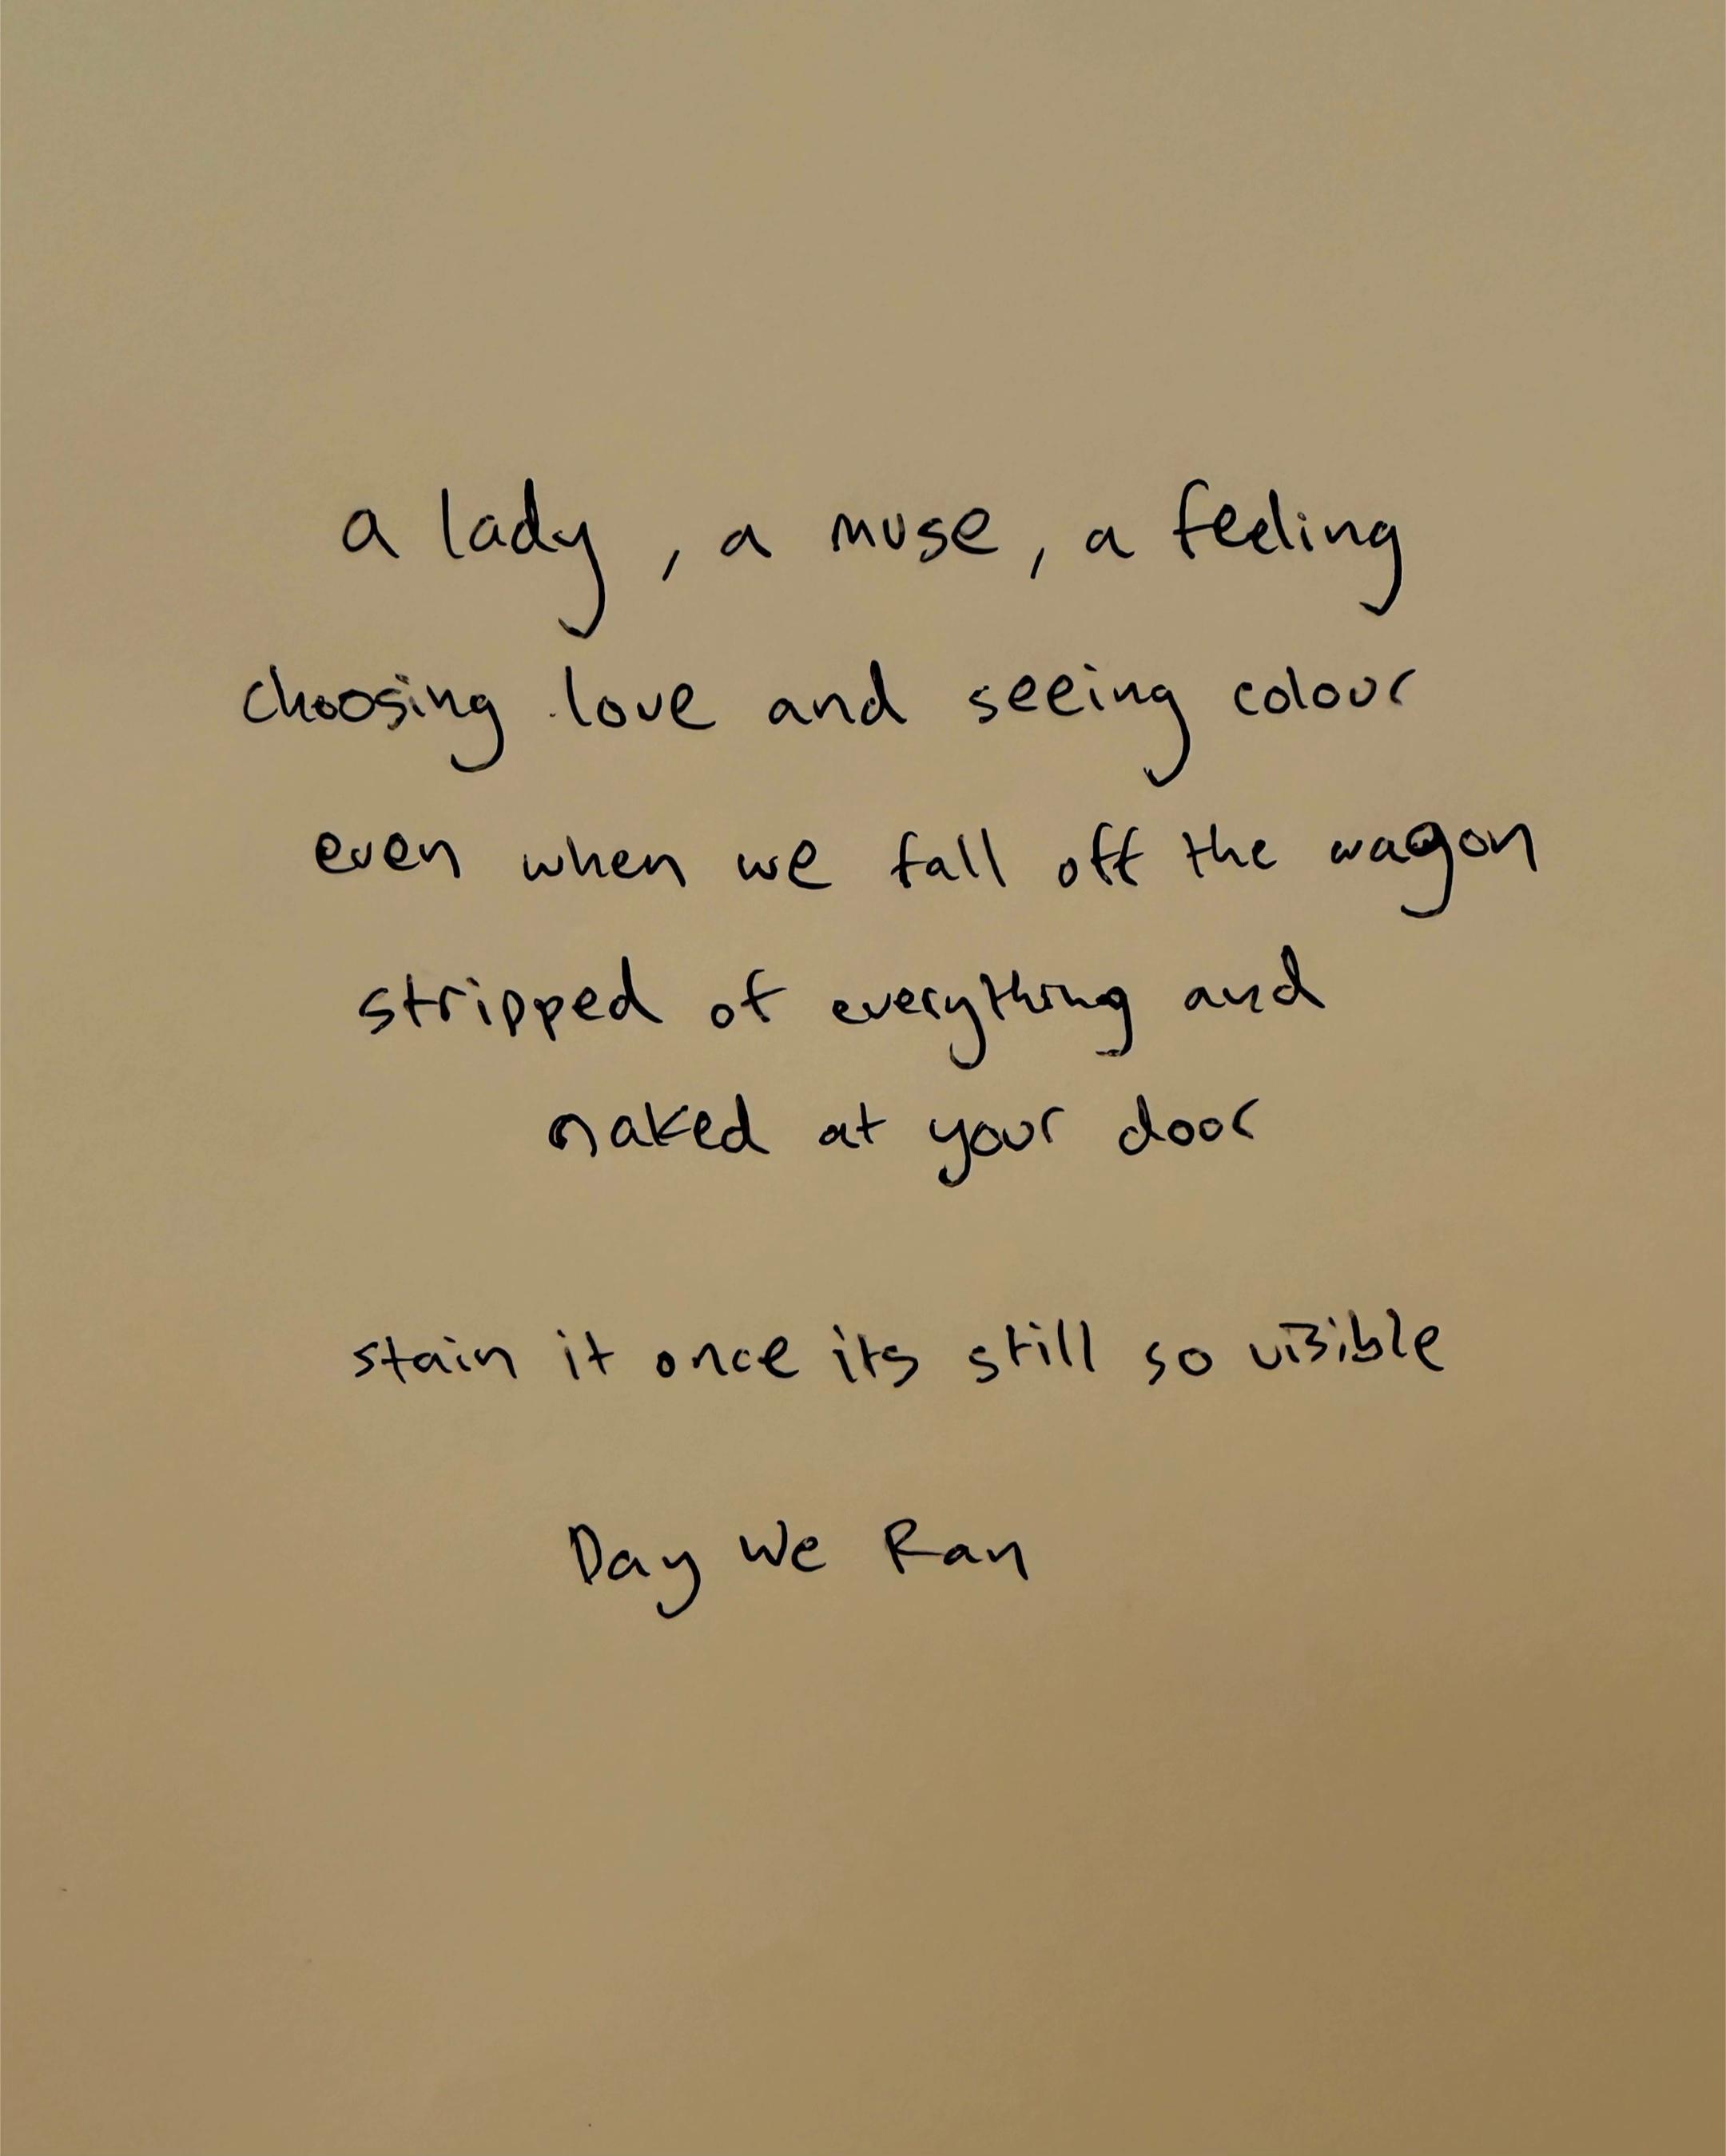 a lady, a muse, a feeling
choosing love and seeing colour
even when we fall off the wagon
stripped of everything and
naked at your door
stain it once its still so visible
Day We Ran